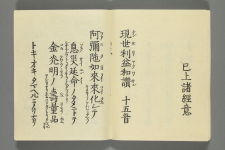 已上諸經意
現世利益和讚 十五首
阿彌陀如來來化シテ
息災延命ノタメニトテ
金光明ノ壽量品
トキオキタマヘルミノリナリ